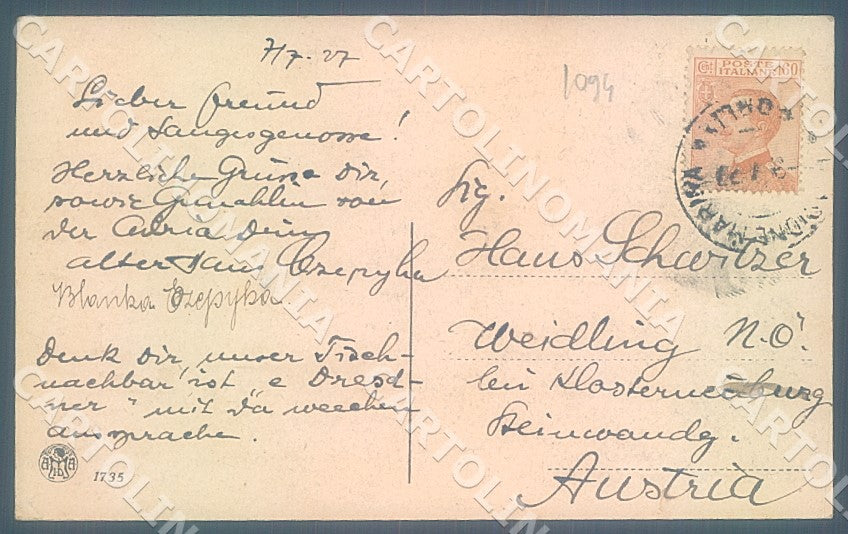 7/7. 27
1094
Lieber Freund
und Sangesgenosse!
Herzliche Grüsse Dir,
sowie Gemahlin von
der Adria Dein
alter Hans Czepyha
Blanka Czepyka.
Denk Dir, unser Tisch-
nachbar ist e Dresd-
ner" mit da weechen
Aussprache.
1735
Cent. 60
POSTE
ITALIANE
MARINA
Sig.
Hans Schwitzer
Weidling N.Ö.
bei Klosterneuburg
Steinwandg.
Austria
CARTOLINOMANIA